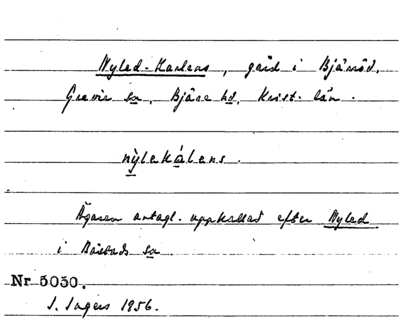 Nyled-Karlens, gård i Bjäröd,
Grevie sn, Bjäre hd, Krist. län.
nỳlekálens.
Ägaren antagl. uppkallad efter Nyled
i Båstads sn.
Nr 5050.
I. Ingers 1956.